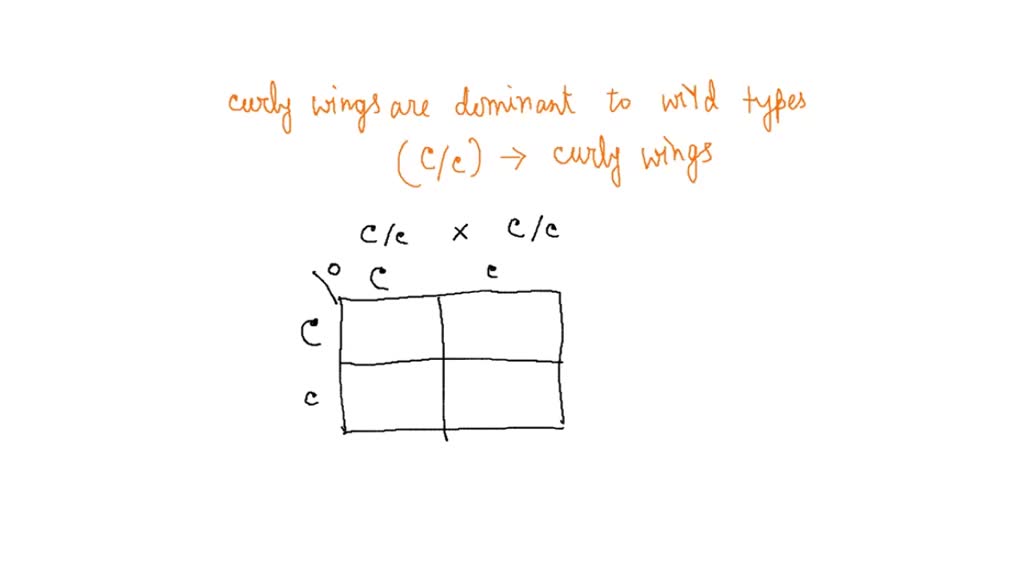 curly wings are dominant to wild types
(C/c) → curly wings
C/c × C/c
C c
C
c